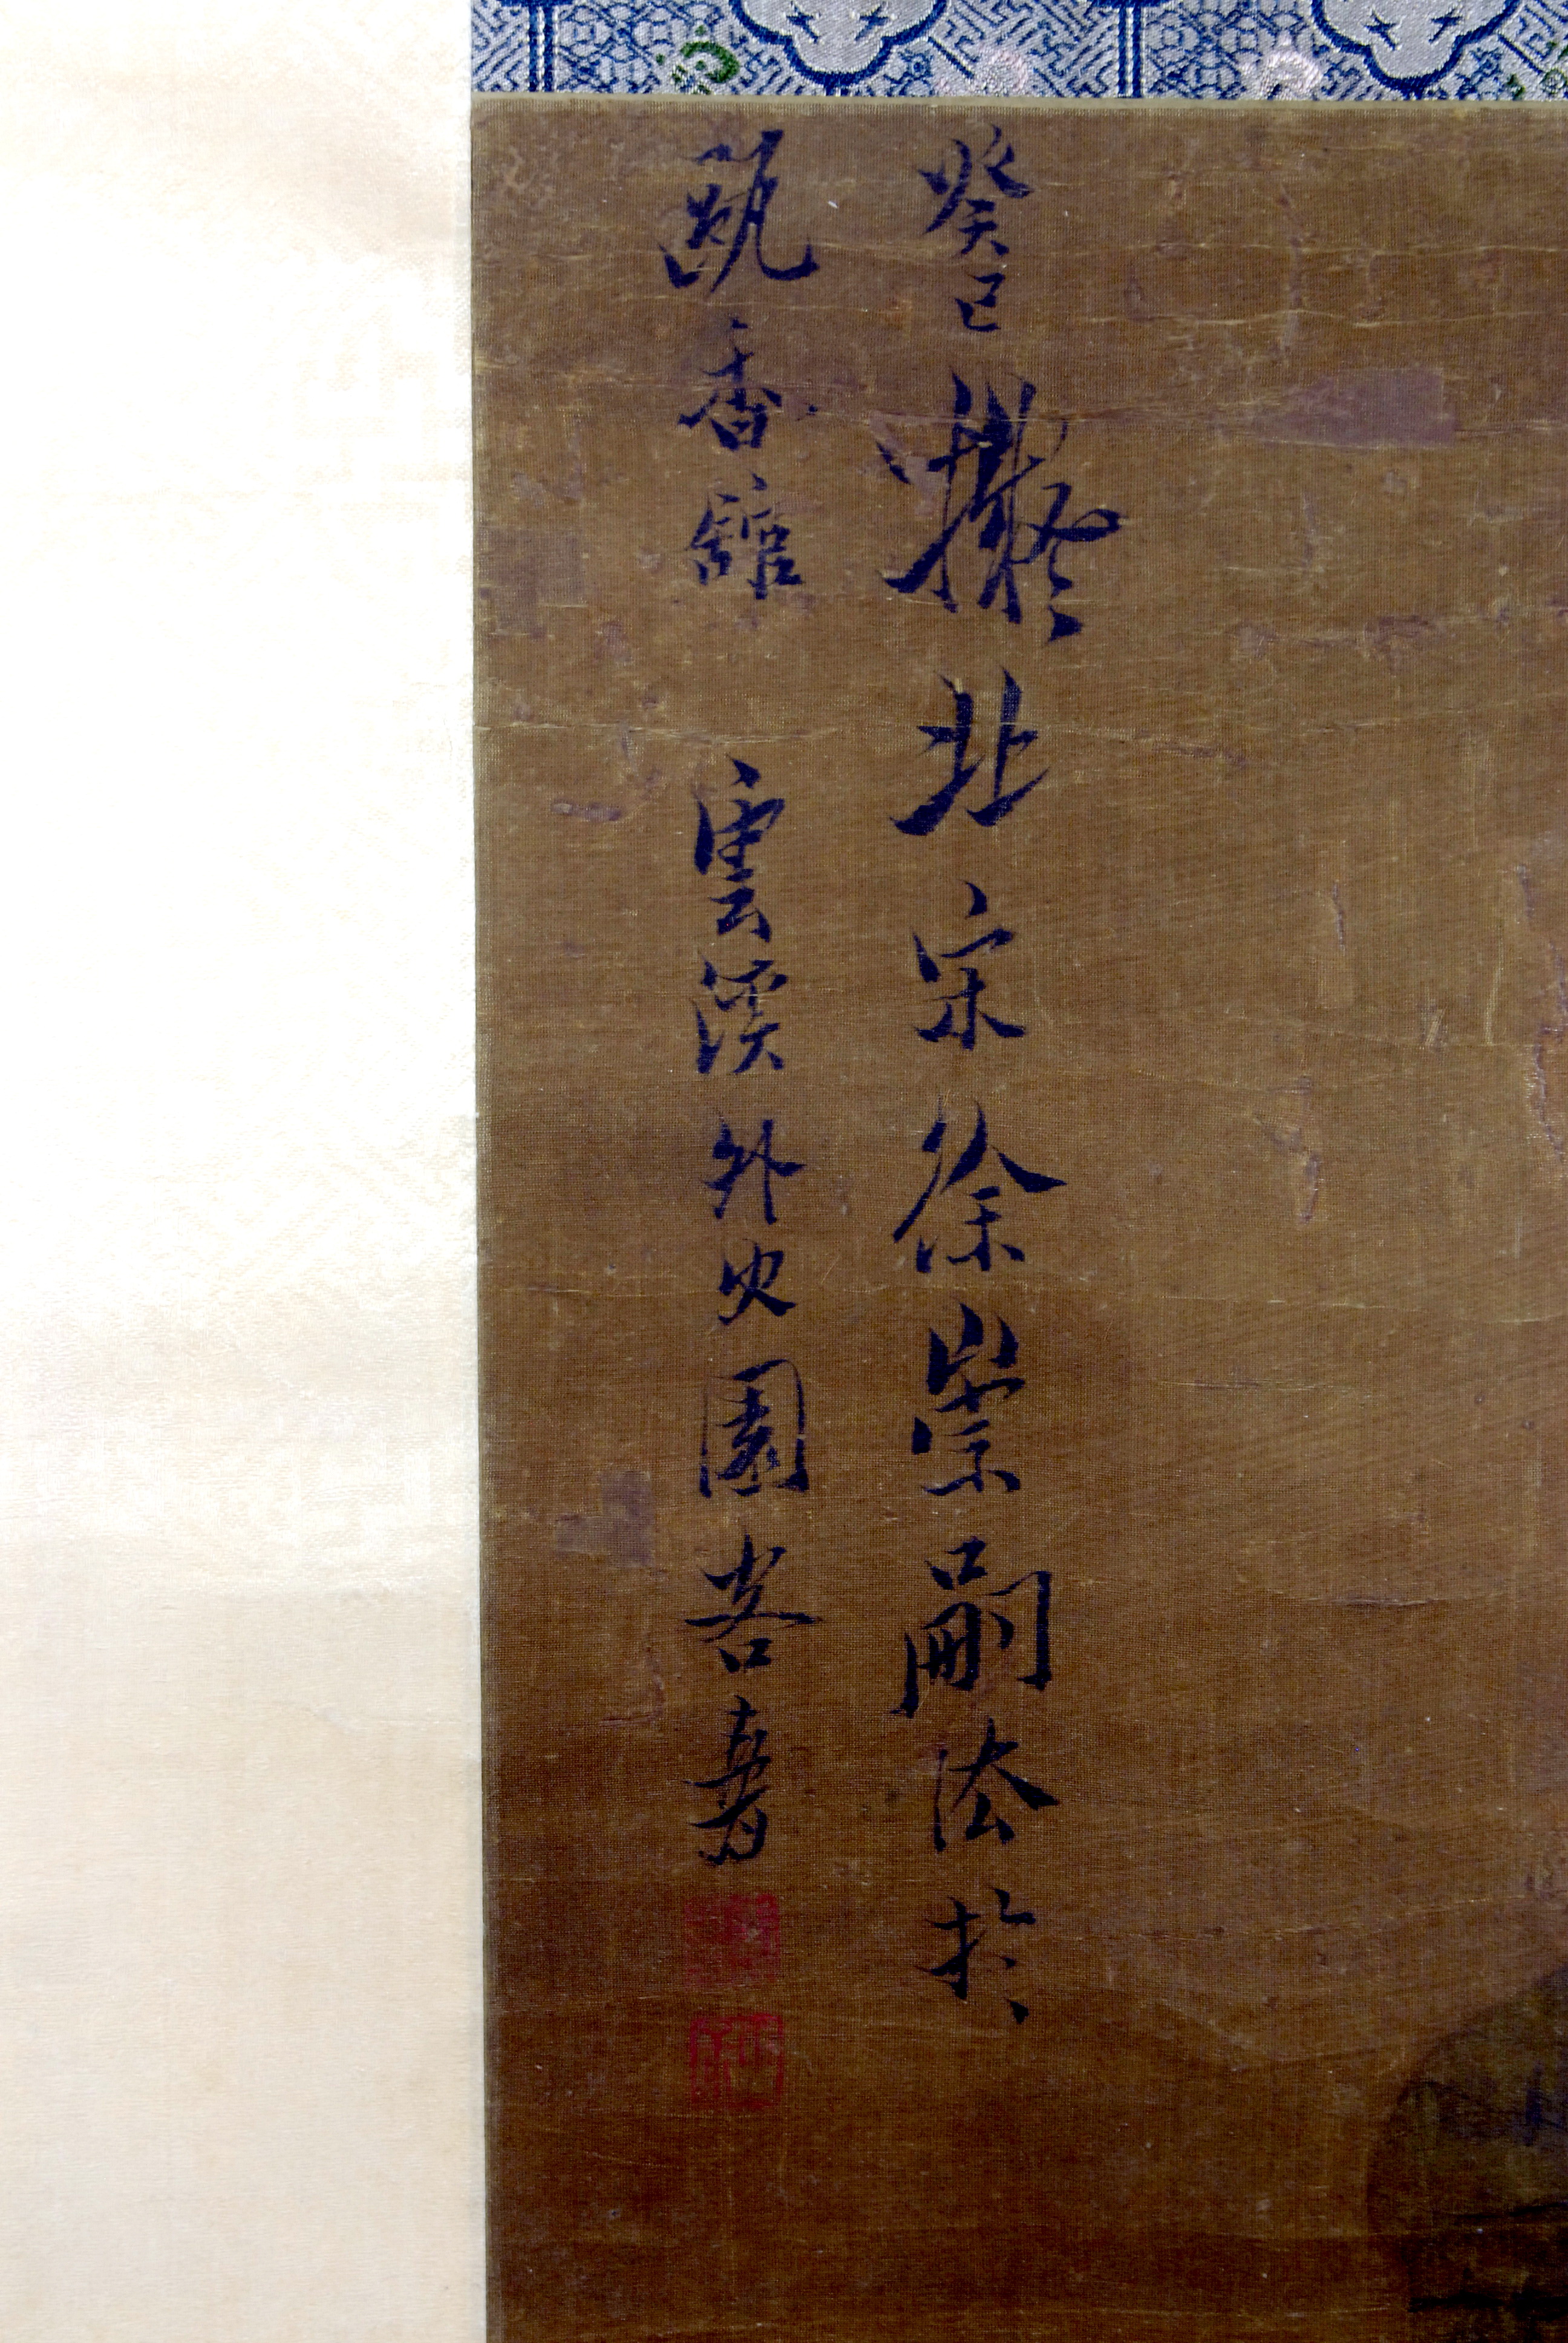 癸巳擬北宋徐崇嗣法於
甌香館 雲溪外史園客壽